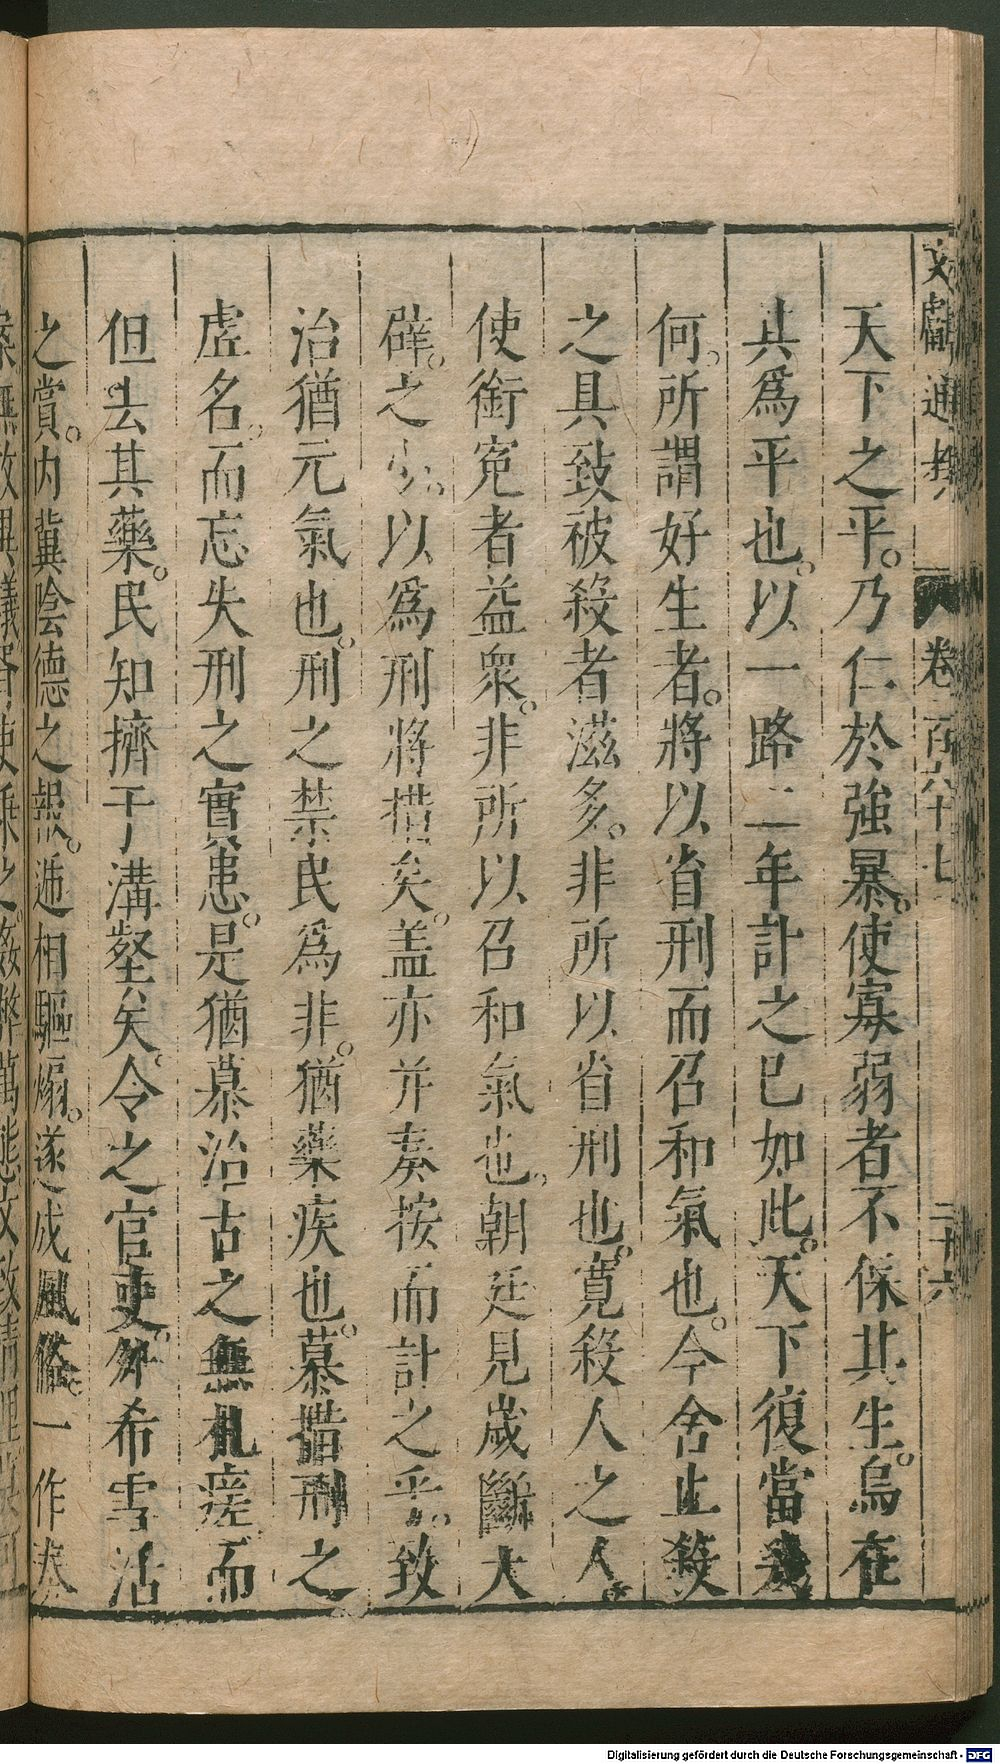 文獻通考 卷一百六十七 二十六
天下之平。乃仁於強暴。使寡弱者不保其生。烏在
其爲平也。以一路二年計之已如此。天下復當幾
何。所謂好生者。將以省刑而召和氣也。今舍止殺
之具致被殺者滋多。非所以省刑也。寬殺人之人。
使銜寃者益衆。非所以召和氣也。朝廷見歲斷大
辟。之少。以爲刑將措矣。盖亦并奏按而計之乎。致
治猶元氣也。刑之禁民爲非。猶藥疾也。慕措刑之
虛名。而忘失刑之實患。是猶慕治古之無札瘥。而
但去其藥。民知擠于溝壑矣。今之官吏。外希雪活
之賞。內冀陰德之報。遞相驅煽。遂成風俗。一作奏
案無敢異議
Digitalisierung gefördert durch die Deutsche Forschungsgemeinschaft - DFG